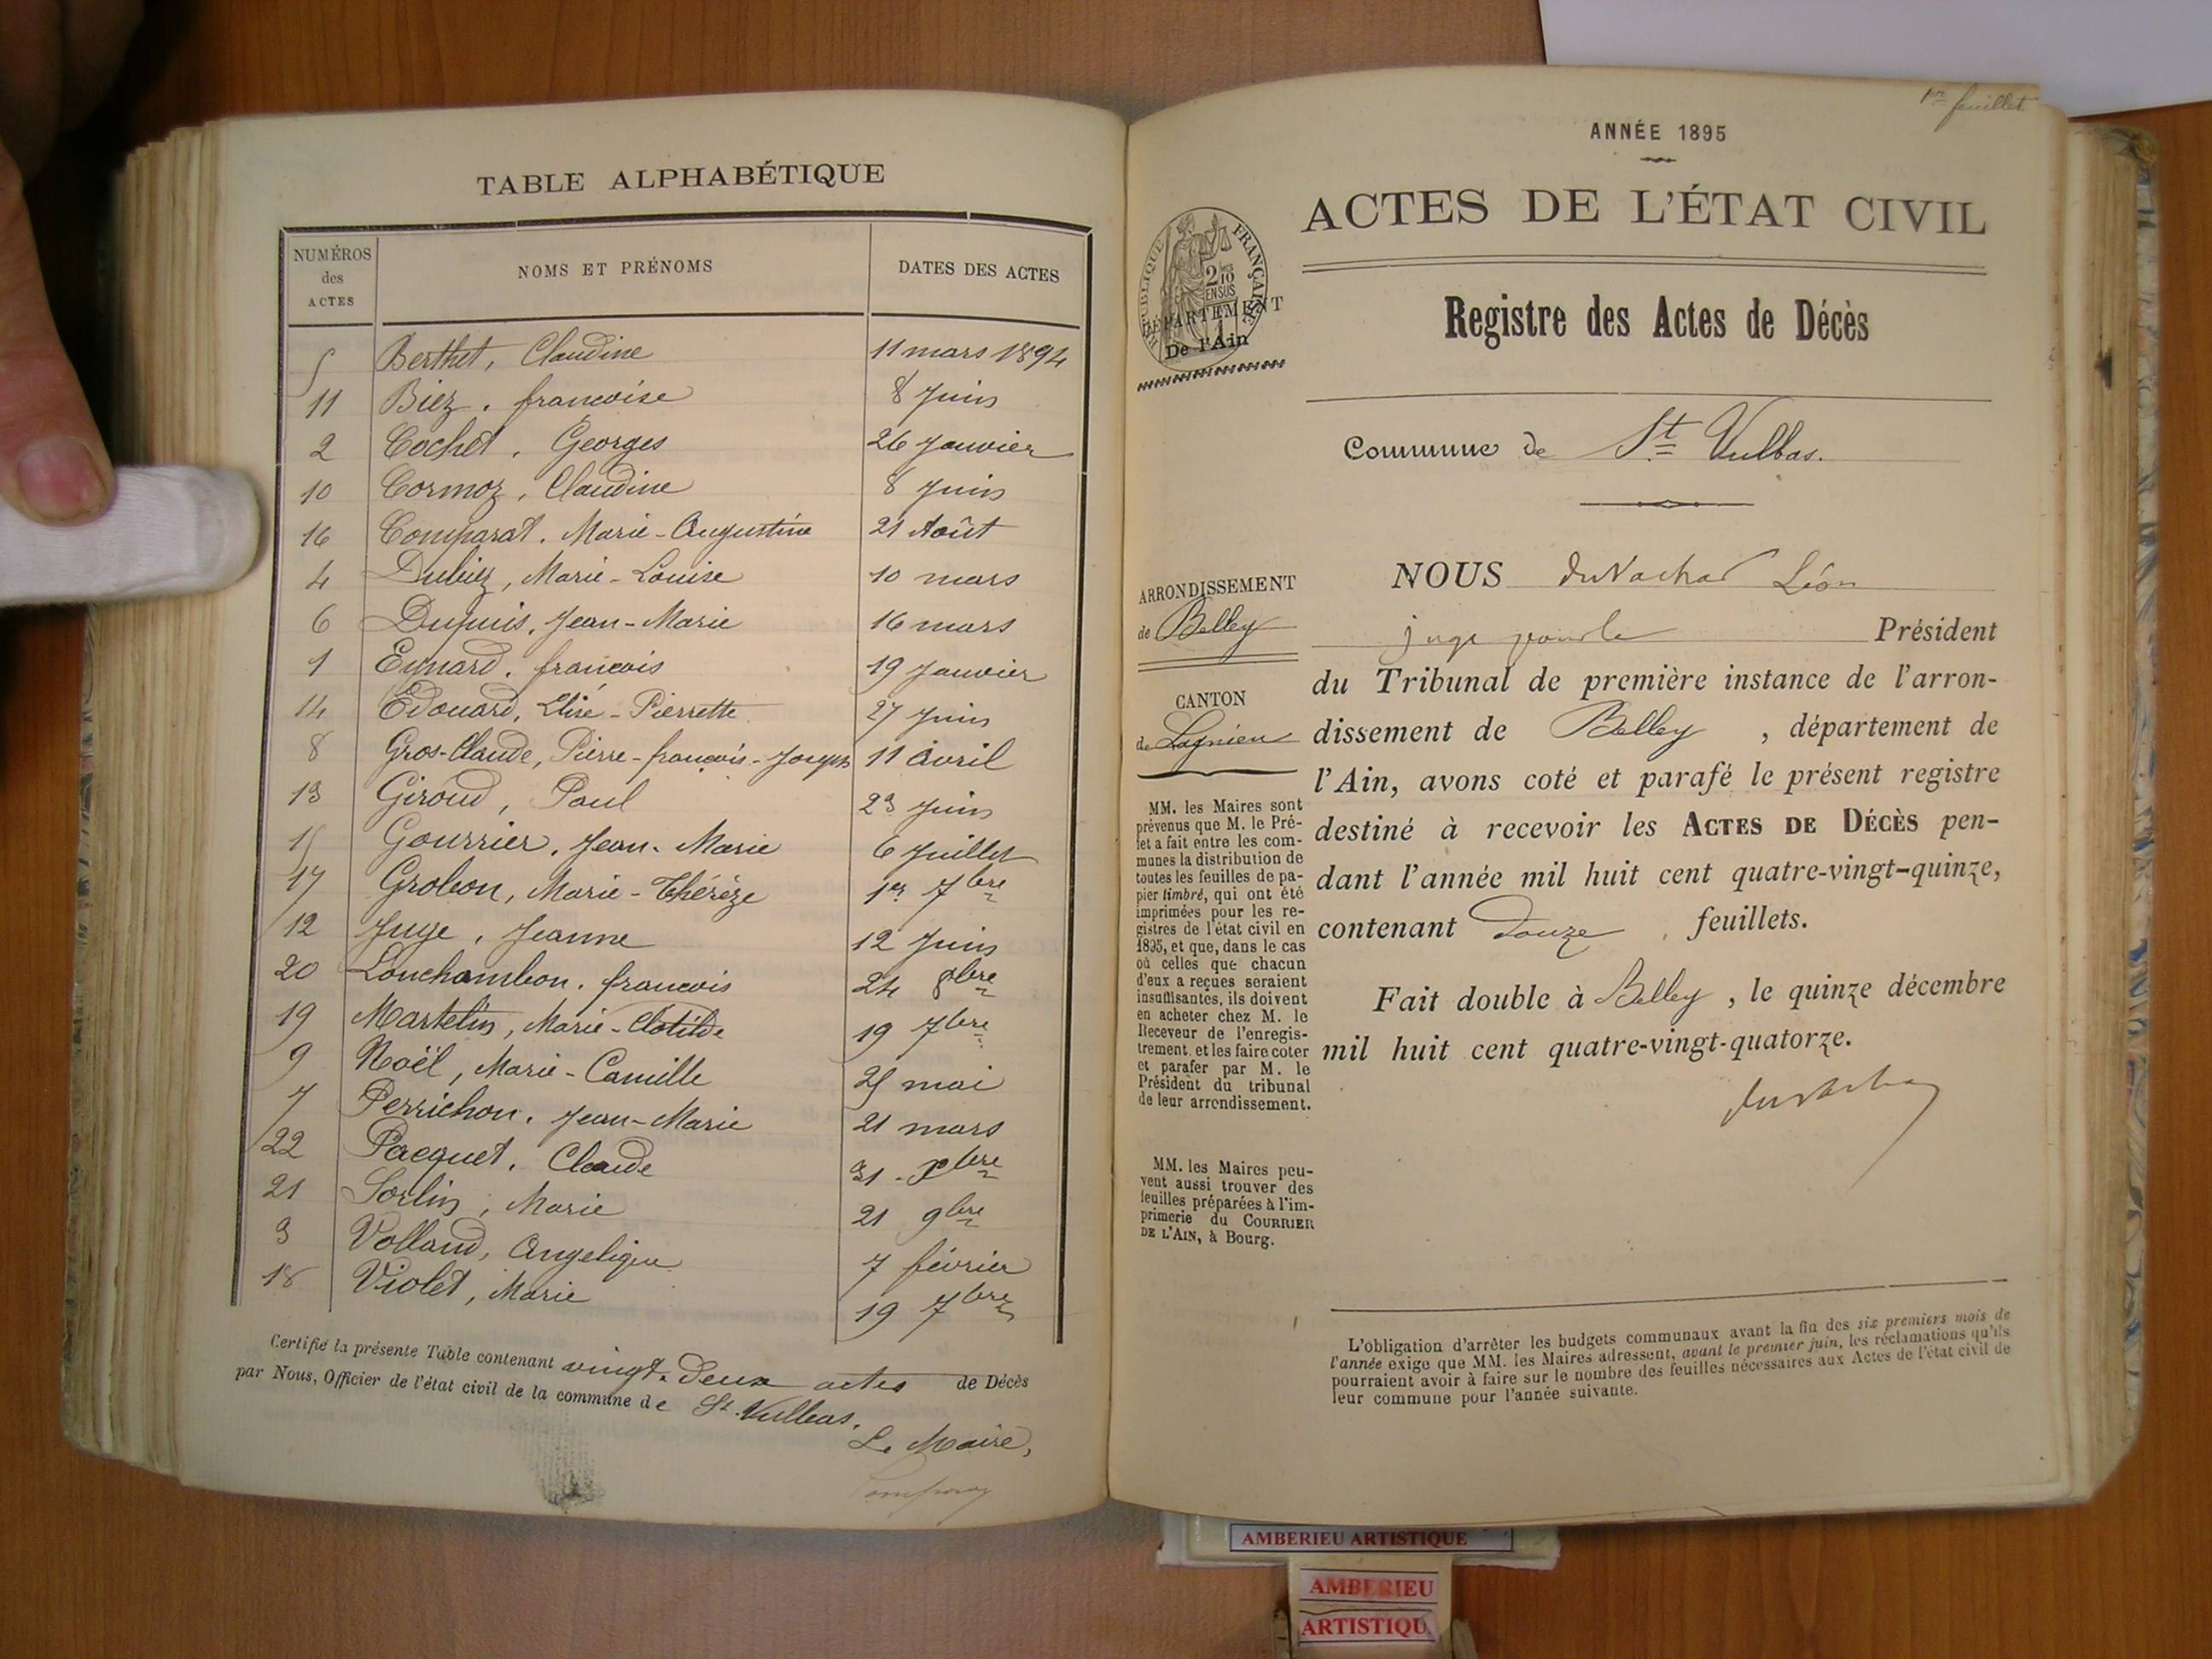 TABLE ALPHABÉTIQUE
NUMÉROS des ACTES NOMS ET PRÉNOMS DATES DES ACTES
5 Berthet, Claudine 11 mars 1894
11 Biez, francoise 8 Juin
2 Cochet, Georges 26 Janvier
10 Cormoz, Claudine 8 Juin
16 Comparat, Marie-Augustine 21 Août
4 Marie-Louise 10 mars
6 Dupuis, Jean-Marie 16 mars
1 Eynard, francois 19 Janvier
14 Edouard, Pierrette 27 Juin
8 Gros-Claude, Pierre-françois-Joseph 11 avril
13 Giroud, Paul 23 Juin
15 Gourrier, Jean-Marie 6 Juillet
17 Grobon, Marie-Thérèze 1er 7bre
12 Juge, Jeanne 12 Juin
20 Louchambon, francois 24 8bre
19 Martelin, Marie-Clotilde 19 7bre
9 Noël, Marie-Camille 25 mai
7 Perrichon, Jean-Marie 21 mars
22 Pacquet, Claude 31 Xbre
21 Sorlin, Marie 21 9bre
3 Volland, Angelique 7 février
18 Violet, Marie 19 7bre
Certifié la présente Table contenant vingt-deux actes de Décès
par Nous, Officier de l'état civil de la commune de St Vulbas.
Le Maire,
1er feuillet
ANNÉE 1895
ACTES DE L'ÉTAT CIVIL
RÉPUBLIQUE FRANÇAISE
2/10 EN SUS
DÉPARTEMENT
De l'Ain
Registre des Actes de Décès
Commune de St Vulbas.
ARRONDISSEMENT
de Belley
CANTON
de Lagnieu
MM. les Maires sont
prévenus que M. le Pré-
fet a fait entre les com-
munes la distribution de
toutes les feuilles de pa-
pier timbré, qui ont été
imprimées pour les re-
gistres de l'état civil en
1895, et que, dans le cas
où celles que chacun
d'eux a reçues seraient
insuffisantes, ils doivent
en acheter chez M. le
Receveur de l'enregis-
trement, et les faire coter
et parafer par M. le
Président du tribunal
de leur arrondissement.
MM. les Maires peu-
vent aussi trouver des
feuilles préparées à l'im-
primerie du COURRIER
DE L'AIN, à Bourg.
NOUS Léon
juge pour le Président
du Tribunal de première instance de l'arron-
dissement de Belley, département de
l'Ain, avons coté et parafé le présent registre
destiné à recevoir les ACTES DE DÉCÈS pen-
dant l'année mil huit cent quatre-vingt-quinze,
contenant douze feuillets.
Fait double à Belley, le quinze décembre
mil huit cent quatre-vingt-quatorze.
L'obligation d'arrêter les budgets communaux avant la fin des six premiers mois de
l'année exige que MM. les Maires adressent, avant le premier juin, les réclamations qu'ils
pourraient avoir à faire sur le nombre des feuilles nécessaires aux Actes de l'état civil de
leur commune pour l'année suivante.
AMBERIEU ARTISTIQUE
AMBERIEU
ARTISTIQU